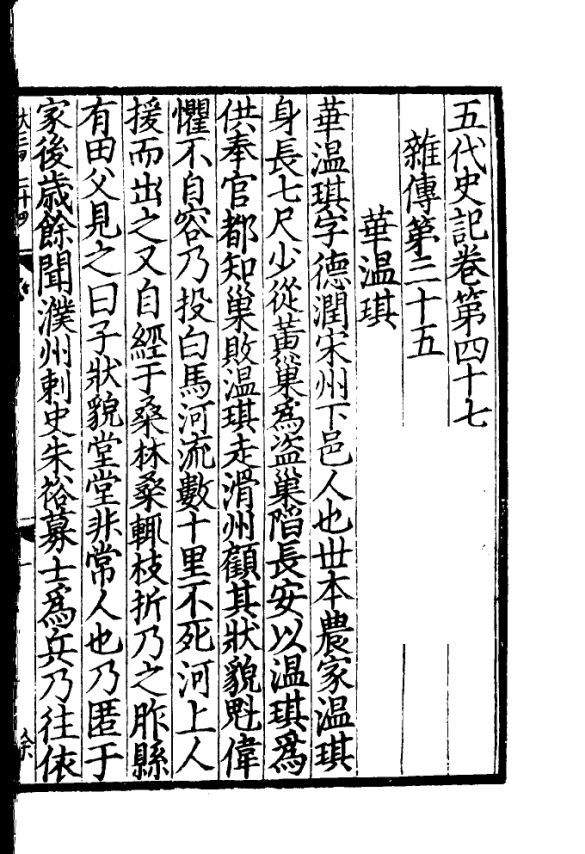 五代史記卷第四十七
雜傳第三十五
華温琪
華温琪字德潤宋州下邑人也世本農家温琪
身長七尺少從黃巢爲盗巢陷長安以温琪爲
供奉官都知巢敗温琪走滑州顧其狀貌魁偉
懼不自容乃投白馬河流數十里不死河上人
援而出之又自經于桑林桑輒枝折乃之胙縣
有田父見之曰子狀貌堂堂非常人也乃匿于
家後歲餘聞濮州刺史朱裕募士爲兵乃往依